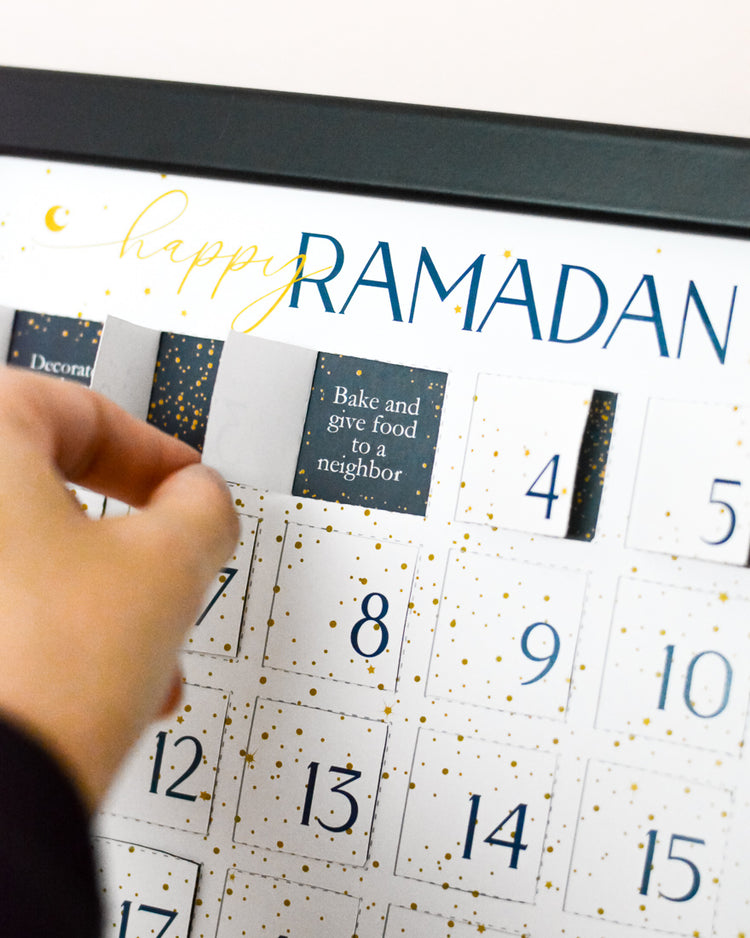 happy RAMADAN
Decorate
Bake and
give food
to a
neighbor
4
5
7
8
9
10
12
13
14
15
17